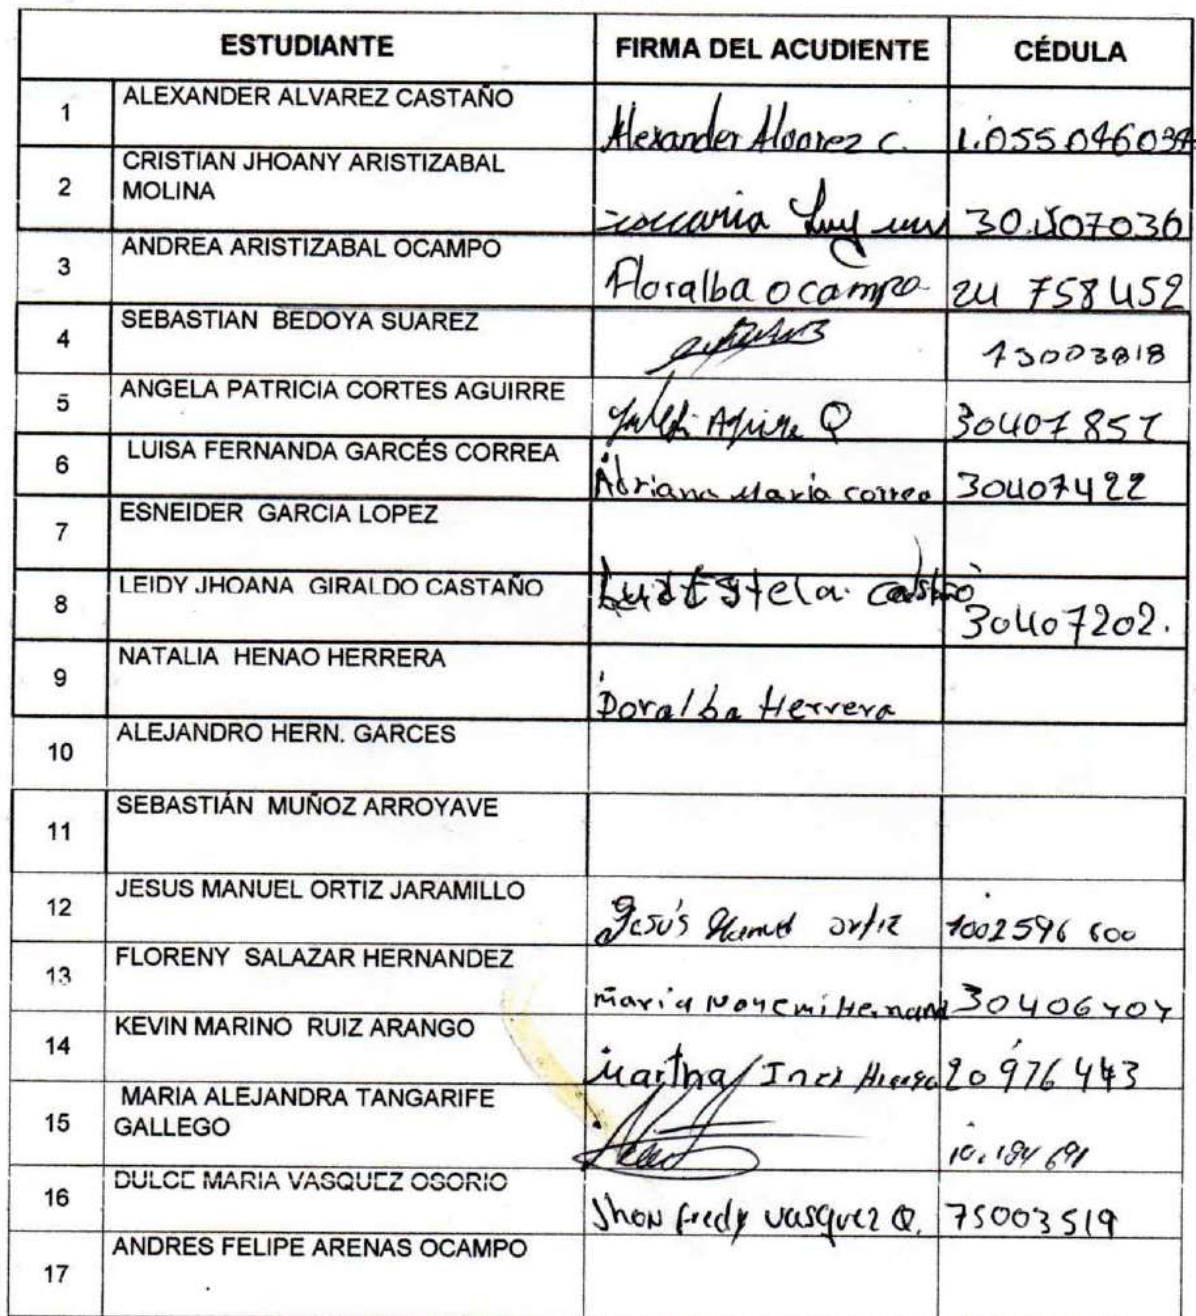 ESTUDIANTE FIRMA DEL ACUDIENTE CÉDULA
1 ALEXANDER ALVAREZ CASTAÑO Alexander Alvarez C. 1.055046034
2 CRISTIAN JHOANY ARISTIZABAL
MOLINA Luz 30.407036
3 ANDREA ARISTIZABAL OCAMPO Floralba ocampo 24 758452
4 SEBASTIAN BEDOYA SUAREZ
5 ANGELA PATRICIA CORTES AGUIRRE Q 30407857
6 LUISA FERNANDA GARCÉS CORREA Adriana Maria correa 30407422
7 ESNEIDER GARCIA LOPEZ
8 LEIDY JHOANA GIRALDO CASTAÑO Luz Estela castaño 30407202.
9 NATALIA HENAO HERRERA Doralba Herrera
10 ALEJANDRO HERN. GARCES
11 SEBASTIÁN MUÑOZ ARROYAVE
12 JESUS MANUEL ORTIZ JARAMILLO Jesús Manuel ortiz 1002596600
13 FLORENY SALAZAR HERNANDEZ maria Nohemi Hernand 30406707
14 KEVIN MARINO RUIZ ARANGO Martha Ines 20976443
15 MARIA ALEJANDRA TANGARIFE
GALLEGO 10.184691
16 DULCE MARIA VASQUEZ OSORIO Jhon fredy vasquez Q. 75003519
17 ANDRES FELIPE ARENAS OCAMPO